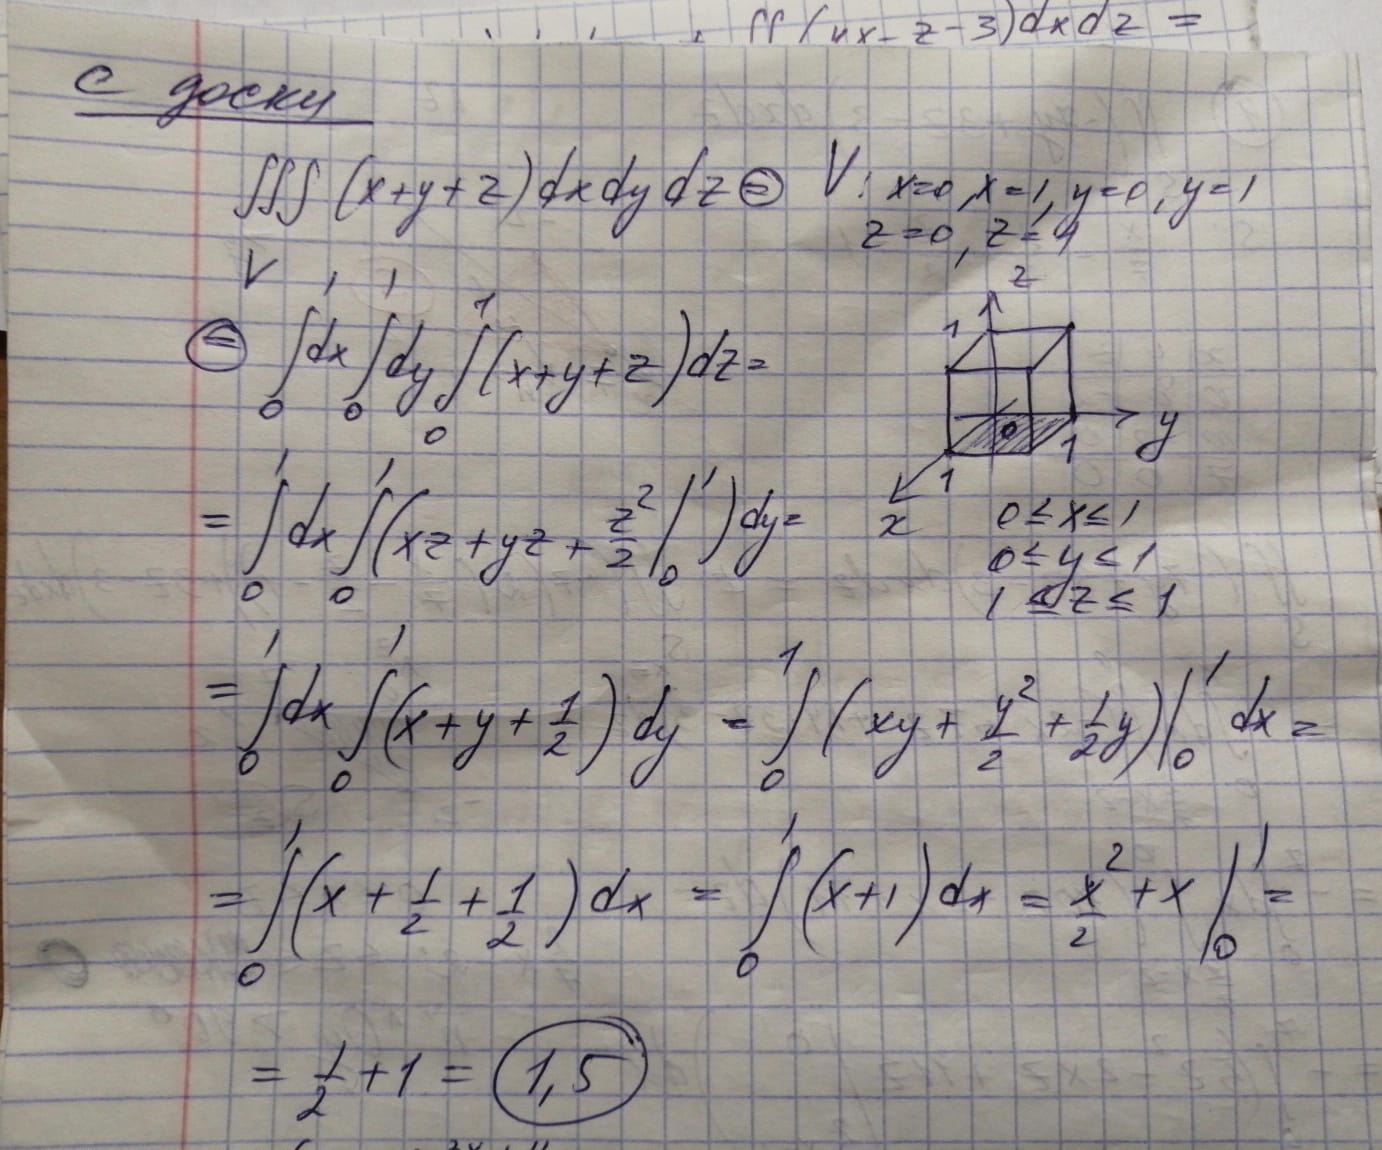 ∬(4x-z-3)dxdz =
с доски
∭(x+y+z)dxdydz ⊜ V: x=0, x=1, y=0, y=1
V
z=0, z=1
⊜ ∫₀¹dx∫₀¹dy∫₀¹(x+y+z)dz=
z
1
0
y
1
1
x
= ∫₀¹dx∫₀¹(xz+yz+z²/2|₀¹)dy=
0≤x≤1
0≤y≤1
1≤z≤1
= ∫₀¹dx∫₀¹(x+y+1/2)dy = ∫₀¹(xy+y²/2+1/2y)|₀¹ dx =
= ∫₀¹(x+1/2+1/2)dx = ∫₀¹(x+1)dx = x²/2+x|₀¹ =
= 1/2+1 = 1,5